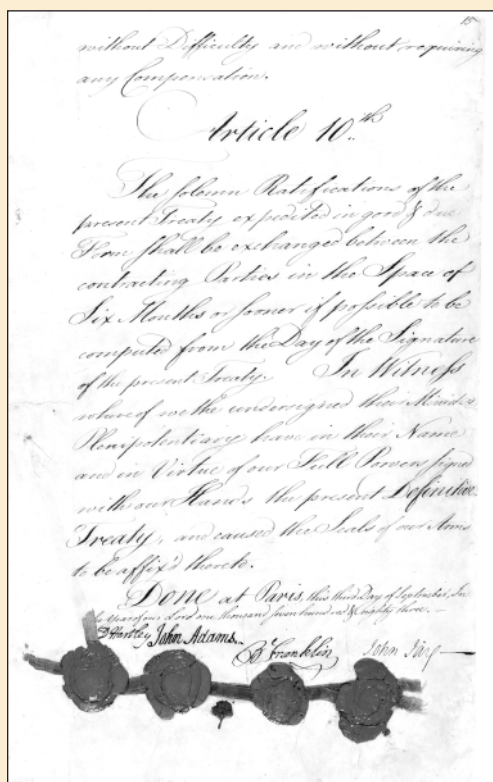 15
without Difficulty and without requiring
any Compensation.
Article 10th
The solemn Ratifications of the
present Treaty expedited in good & due
Form shall be exchanged between the
contracting Parties in the Space of
Six Months or sooner if possible to be
computed from the Day of the Signature
of the present Treaty. In Witness
whereof we the undersigned their Ministers
Plenipotentiary have in their Name
and in Virtue of our Full Powers signed
with our Hands the present Definitive
Treaty, and caused the Seals of our Arms
to be affix'd thereto.
Done at Paris, this third Day of September, In
the Year of our Lord one thousand seven hundred & eighty three.
D Hartley John Adams. B Franklin John Jay